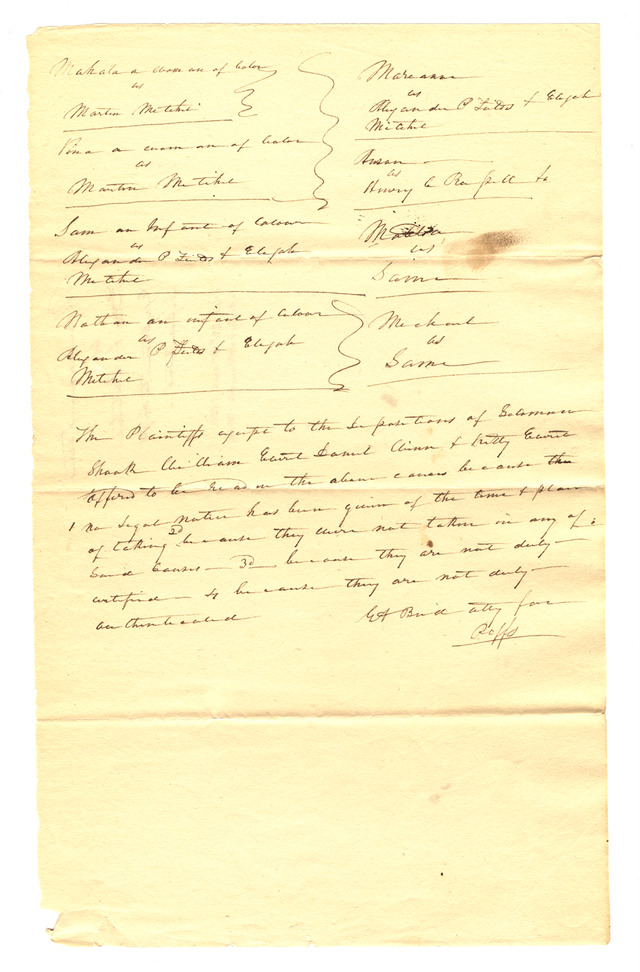 Mahala a woman of Color
vs
Martin Mitchel
Vina a woman of Color
vs
Martin Mitchel
Sam an Infant of Colour
vs
Alexander P Fields & Elijah
Mitchel
Nathan an infant of Colour
vs
Alexander P Fields & Elijah
Mitchel
Mareanne
vs
Alexander P Fields & Elijah
Mitchel
Susan
vs
Henry C
vs
Same
Michael
vs
Same
The Plaintiffs except to the Depositions of Solomon
Shook William Daniel Winn & Kitty
offered to be read on the above causes because the
1 no legal notice has been given of the time & place
of taking 2d because they were not taken in any of
said causes — 3d because they are not duly
certified — 4 because they are not duly
authenticated
G A Bird atty for
Plffs